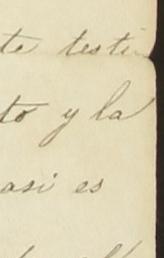 te testi
to y la
asi es